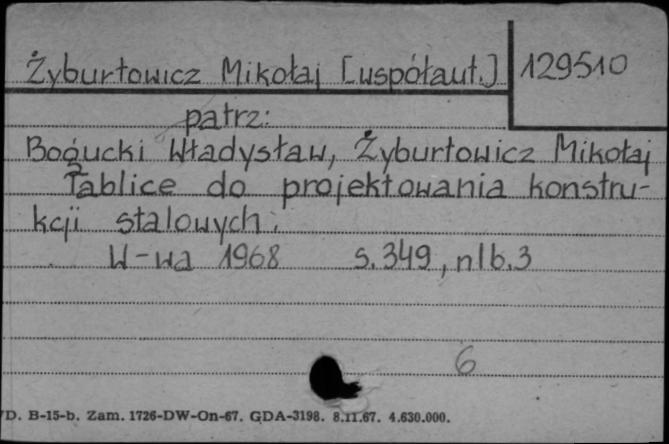 Żyburtowicz Mikołaj [współaut.] 129510
patrz:
Bogucki Władysław, Żyburtowicz Mikołaj
Tablice do projektowania konstru-
kcji stalowych.
W-wa 1968 s. 349, nlb. 3
6
D. B-15-b. Zam. 1726-DW-On-67. GDA-3198. 8.11.67. 4.630.000.